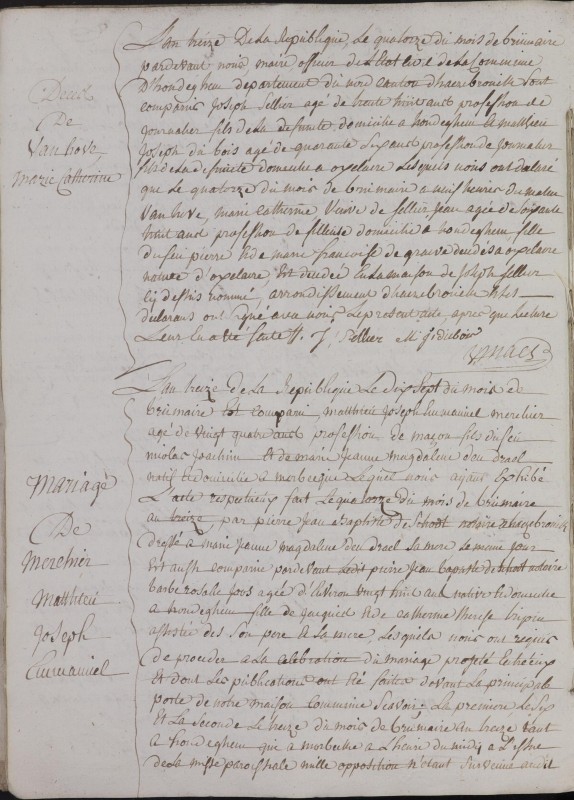 L'an treize De La Republique, Le quatorze du mois de brumaire
pardevant nous maire officier de L'Etat civil de La Commune
D'hondeghem departement du nord canton d'haezebrouck sont
comparus Joseph Sellier agé de trente huit ans profession de
journalier fils de la defunte, domicilié a hondeghem Et Matthieu
Joseph du bois agé de quarante six ans profession de journalier
fils de La defunte domicilié a oxelaere Lesquels nous ont declaré
que Le quatorze du mois de brumaire a neuf heures du matin
Van hove, marie Catherine Veuve de Sellier Jean agée de soixante
huit ans profession de fileuse domiciliée a hondeghem fille
du feu pierre Et de marie françoise de graeve decedés a oxelaere
native d'oxelaere, Est decedée En La maison de Joseph Sellier
cy dessus nommé, arrondissement d'haezebrouck Et les
declarans ont signé avec nous Le present acte, apres que Lecture
Leur En a été faite. J. Sellier M. J. dubois
Deces
De
Van hove
Marie Catherine
L'an treize de La Republique Le dix sept du mois de
brumaire Est comparu matthieu Joseph Emmanuel merchier
agé de vingt quatre ans profession de maçon fils du feu
nicolas Joachim Et de marie Jeanne magdalene
natif Et domicilié a morbecque Lequel nous ayant Exhibé
L'acte respectueux fait Le quatorze du mois de brumaire
an treize, par pierre Jean Baptiste de Schodt notaire a haezebrouck
dressé a marie Jeanne magdalene sa mere Le meme jour
Est aussi comparue par devant Ledit pierre Jean baptiste de Schodt notaire
barbe rosalie agée d'Environ vingt huit ans native Et domiciliée
a hondeghem fille de Jacques Et de Catherine therese
assistée des son pere Et La mere, Lesquels nous ont requis
de proceder a La Celebration du mariage projeté Entr'eux
Et dont Les publications ont été faites devant La principale
porte de notre maison Commune scavoir, La premiere Le six
Et La Seconde Le treize du mois de brumaire an treize tant
a hondeghem que a morbecke a L'heure du midi a L'issue
de La messe paroissiale nulle opposition n'etant survenue audit
Mariage
De
Merchier
Matthieu
Joseph
Emmanuel